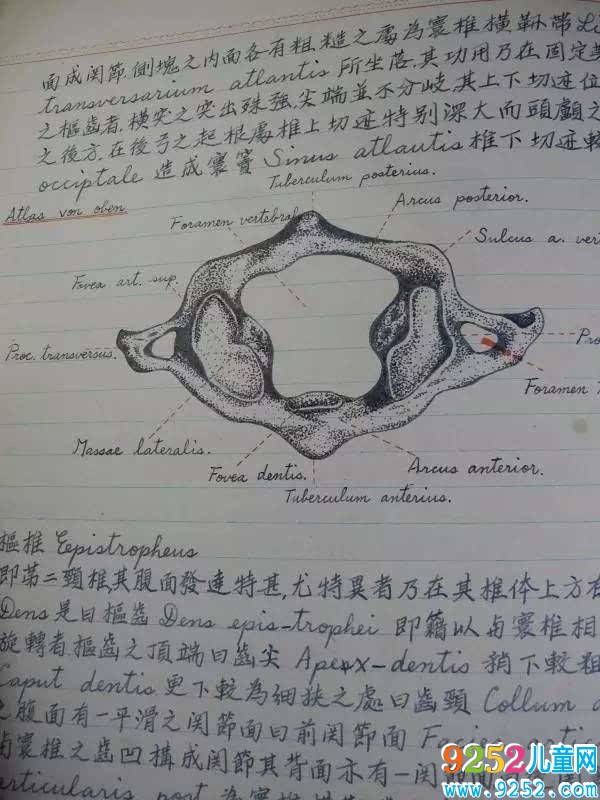 面成関節,側塊之內面各有粗糙之處為寰椎橫靱带Li
transversarium atlantis 所坐落,其功用乃在固定
之樞齒者,橫突之突出殊強,尖端並不分岐,其上下切迹位
之後方,在後弓之起根處椎上切迹特別深大而頭顱之
occiptale 造成寰竇 Sinus atlautis 椎下切迹較
Tuberculum posterius.
Atlas von oben
Foramen vertebral
Arcus posterior.
Sulcus a. ver
Fovea art. sup.
Proc. transversus.
Pro
Foramen
Massae lateralis.
Fovea dentis.
Arcus anterior.
Tuberculum anterius.
樞椎 Epistropheus
即第二頸椎其腹面發達特甚,尤特異者乃在其椎体上方有
Dens是曰樞齒 Dens epis-trophei 即籍以与寰椎相
旋轉者樞齒之頂端曰齒尖 Apex-dentis 稍下較粗
Caput dentis 更下較為細狹之處曰齒頸 Collum d
之腹面有一平滑之関節面曰前関節面 Facies artic
与寰椎之齒凹構成関節其背面亦有一関
articularis post
9252儿童网
www.9252.com